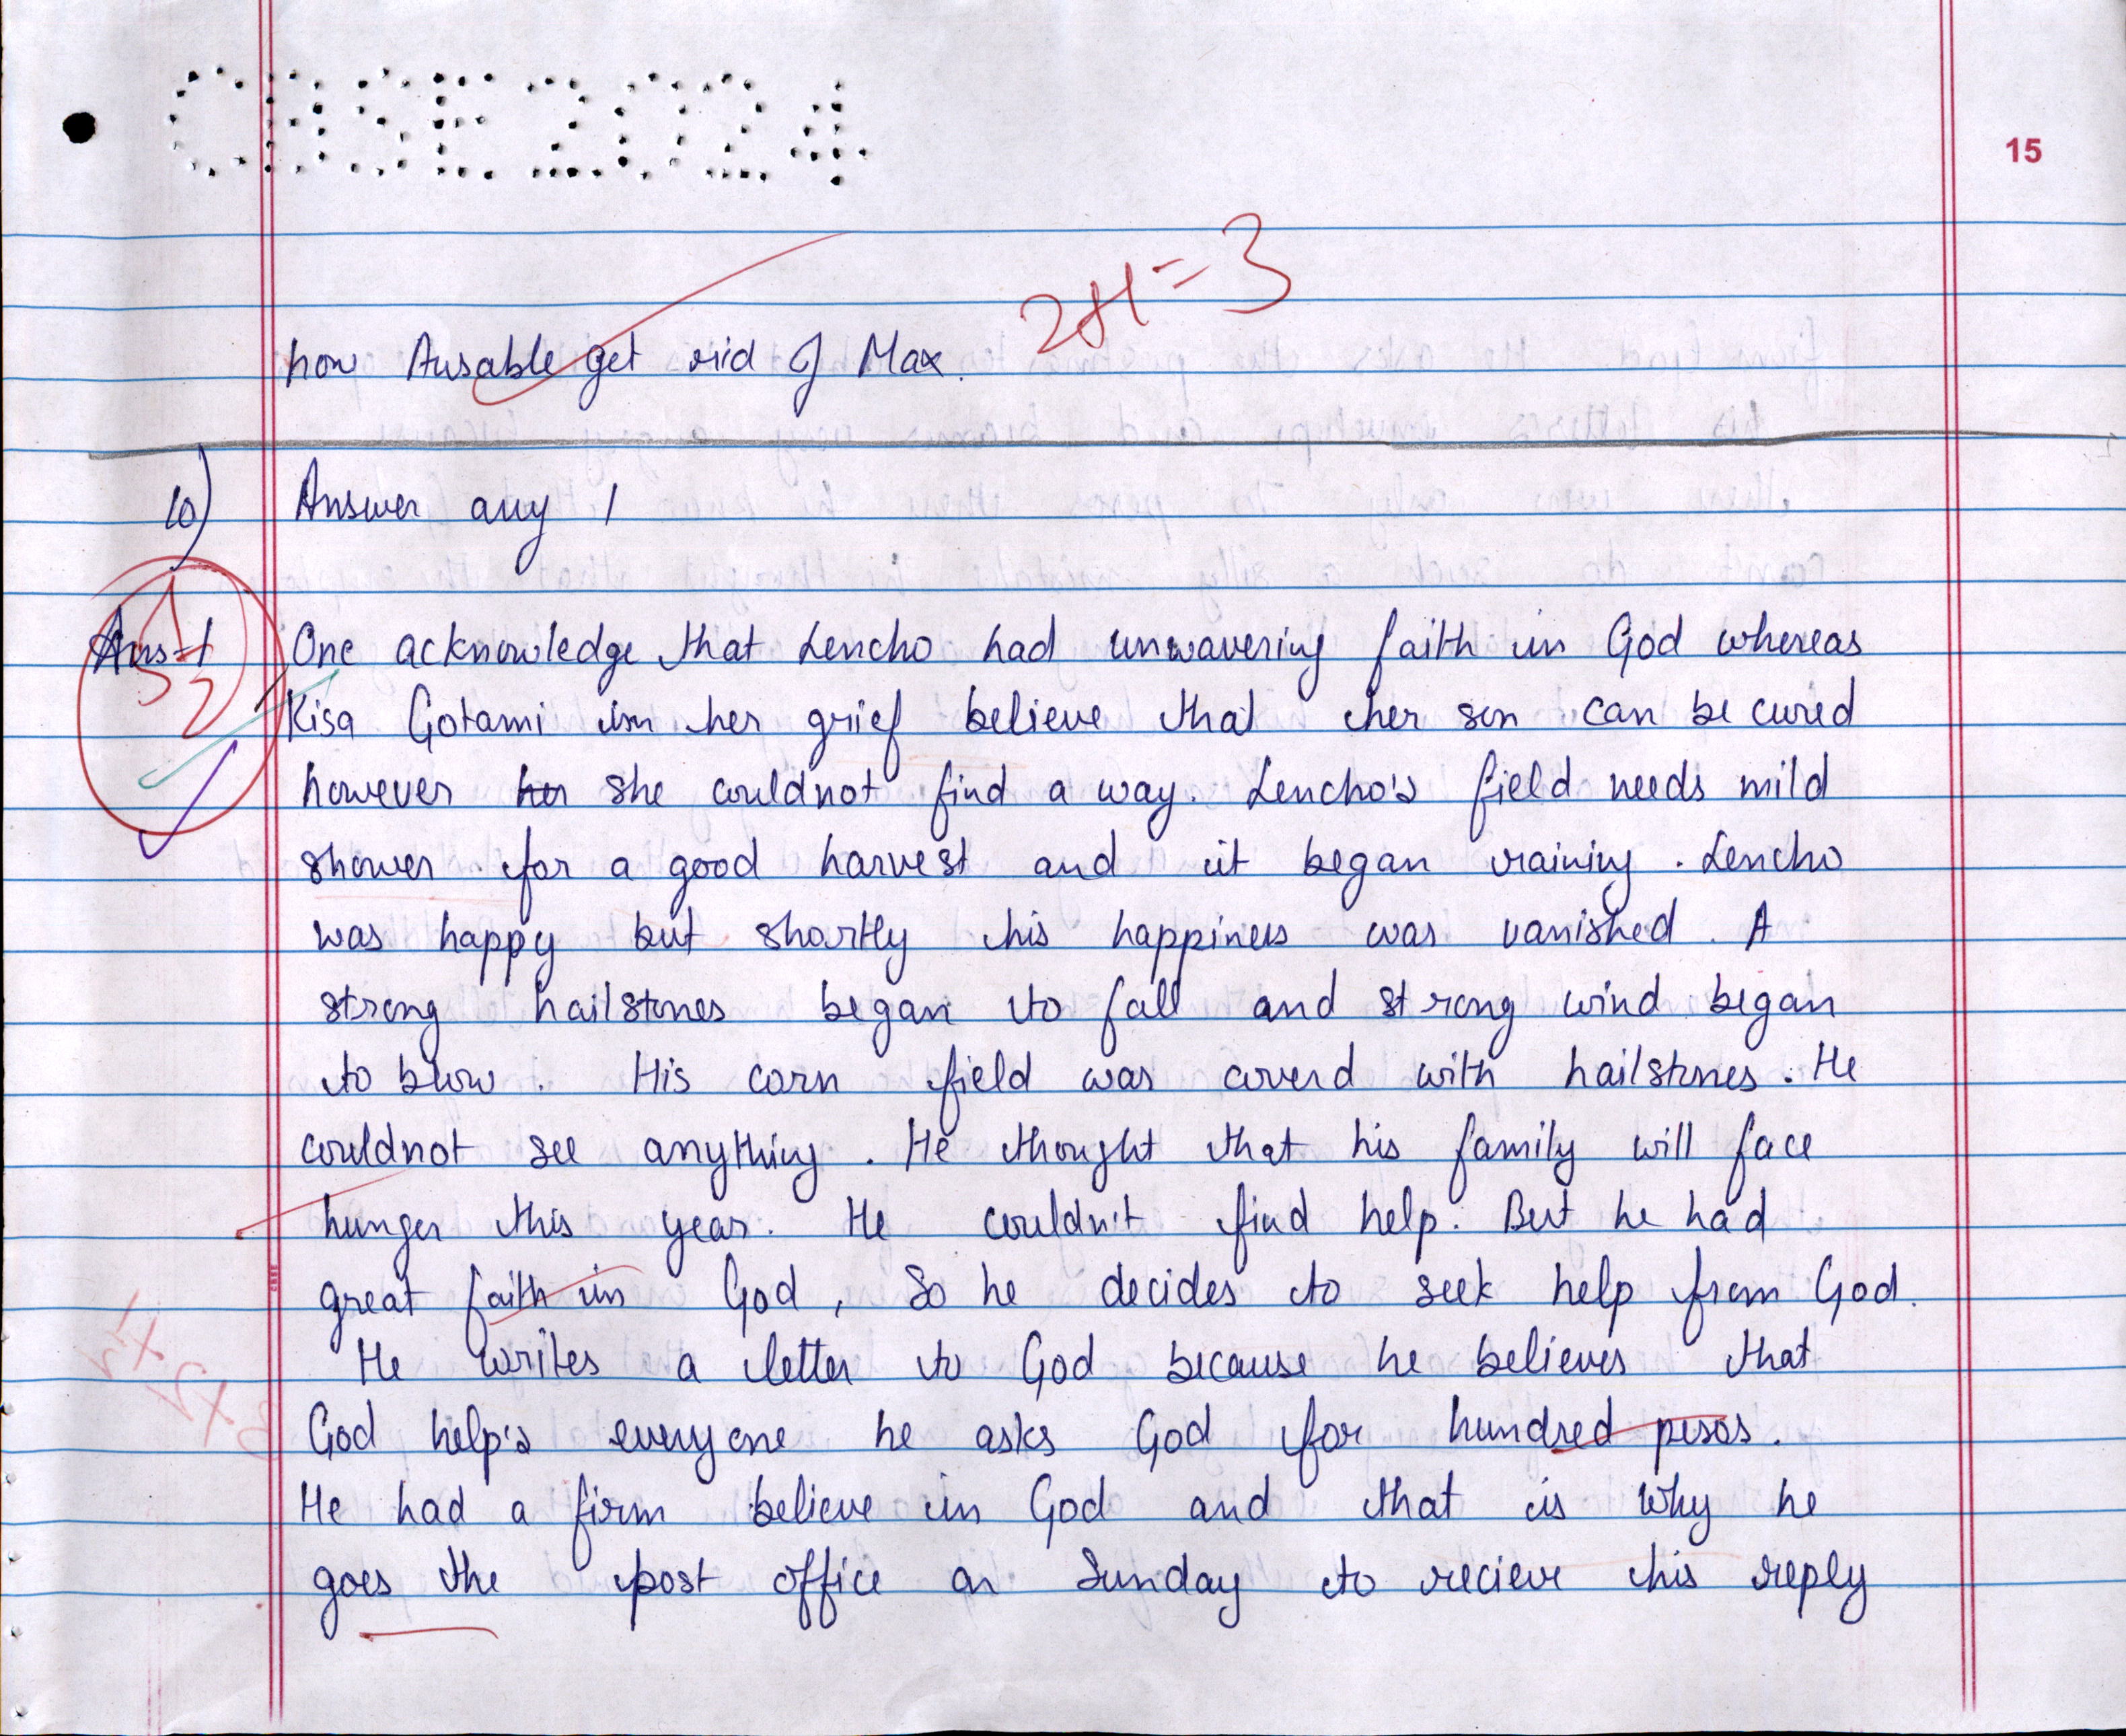 CBSE 2024
15
2+1=3
how Ausable get rid of Max.
10) Answer any 1
Ans-1 One acknowledge that Lencho had unwavering faith in God whereas
Kisa Gotami in her grief believe that her son can be cured
however her she couldnot find a way. Lencho's field needs mild
shower for a good harvest and it began raining. Lencho
was happy but shortly his happiness was vanished. A
strong hailstones began to fall and strong wind began
to blow. His corn field was coverd with hailstones. He
couldnot see anything. He thought that his family will face
hunger this year. He couldn't find help. But he had
great faith in God, So he decides to seek help from God.
He writes a letter to God because he believes that
God help's everyone he asks God for hundred pesos.
He had a firm believe in God and that is why he
goes the post office on Sunday to recieve his reply